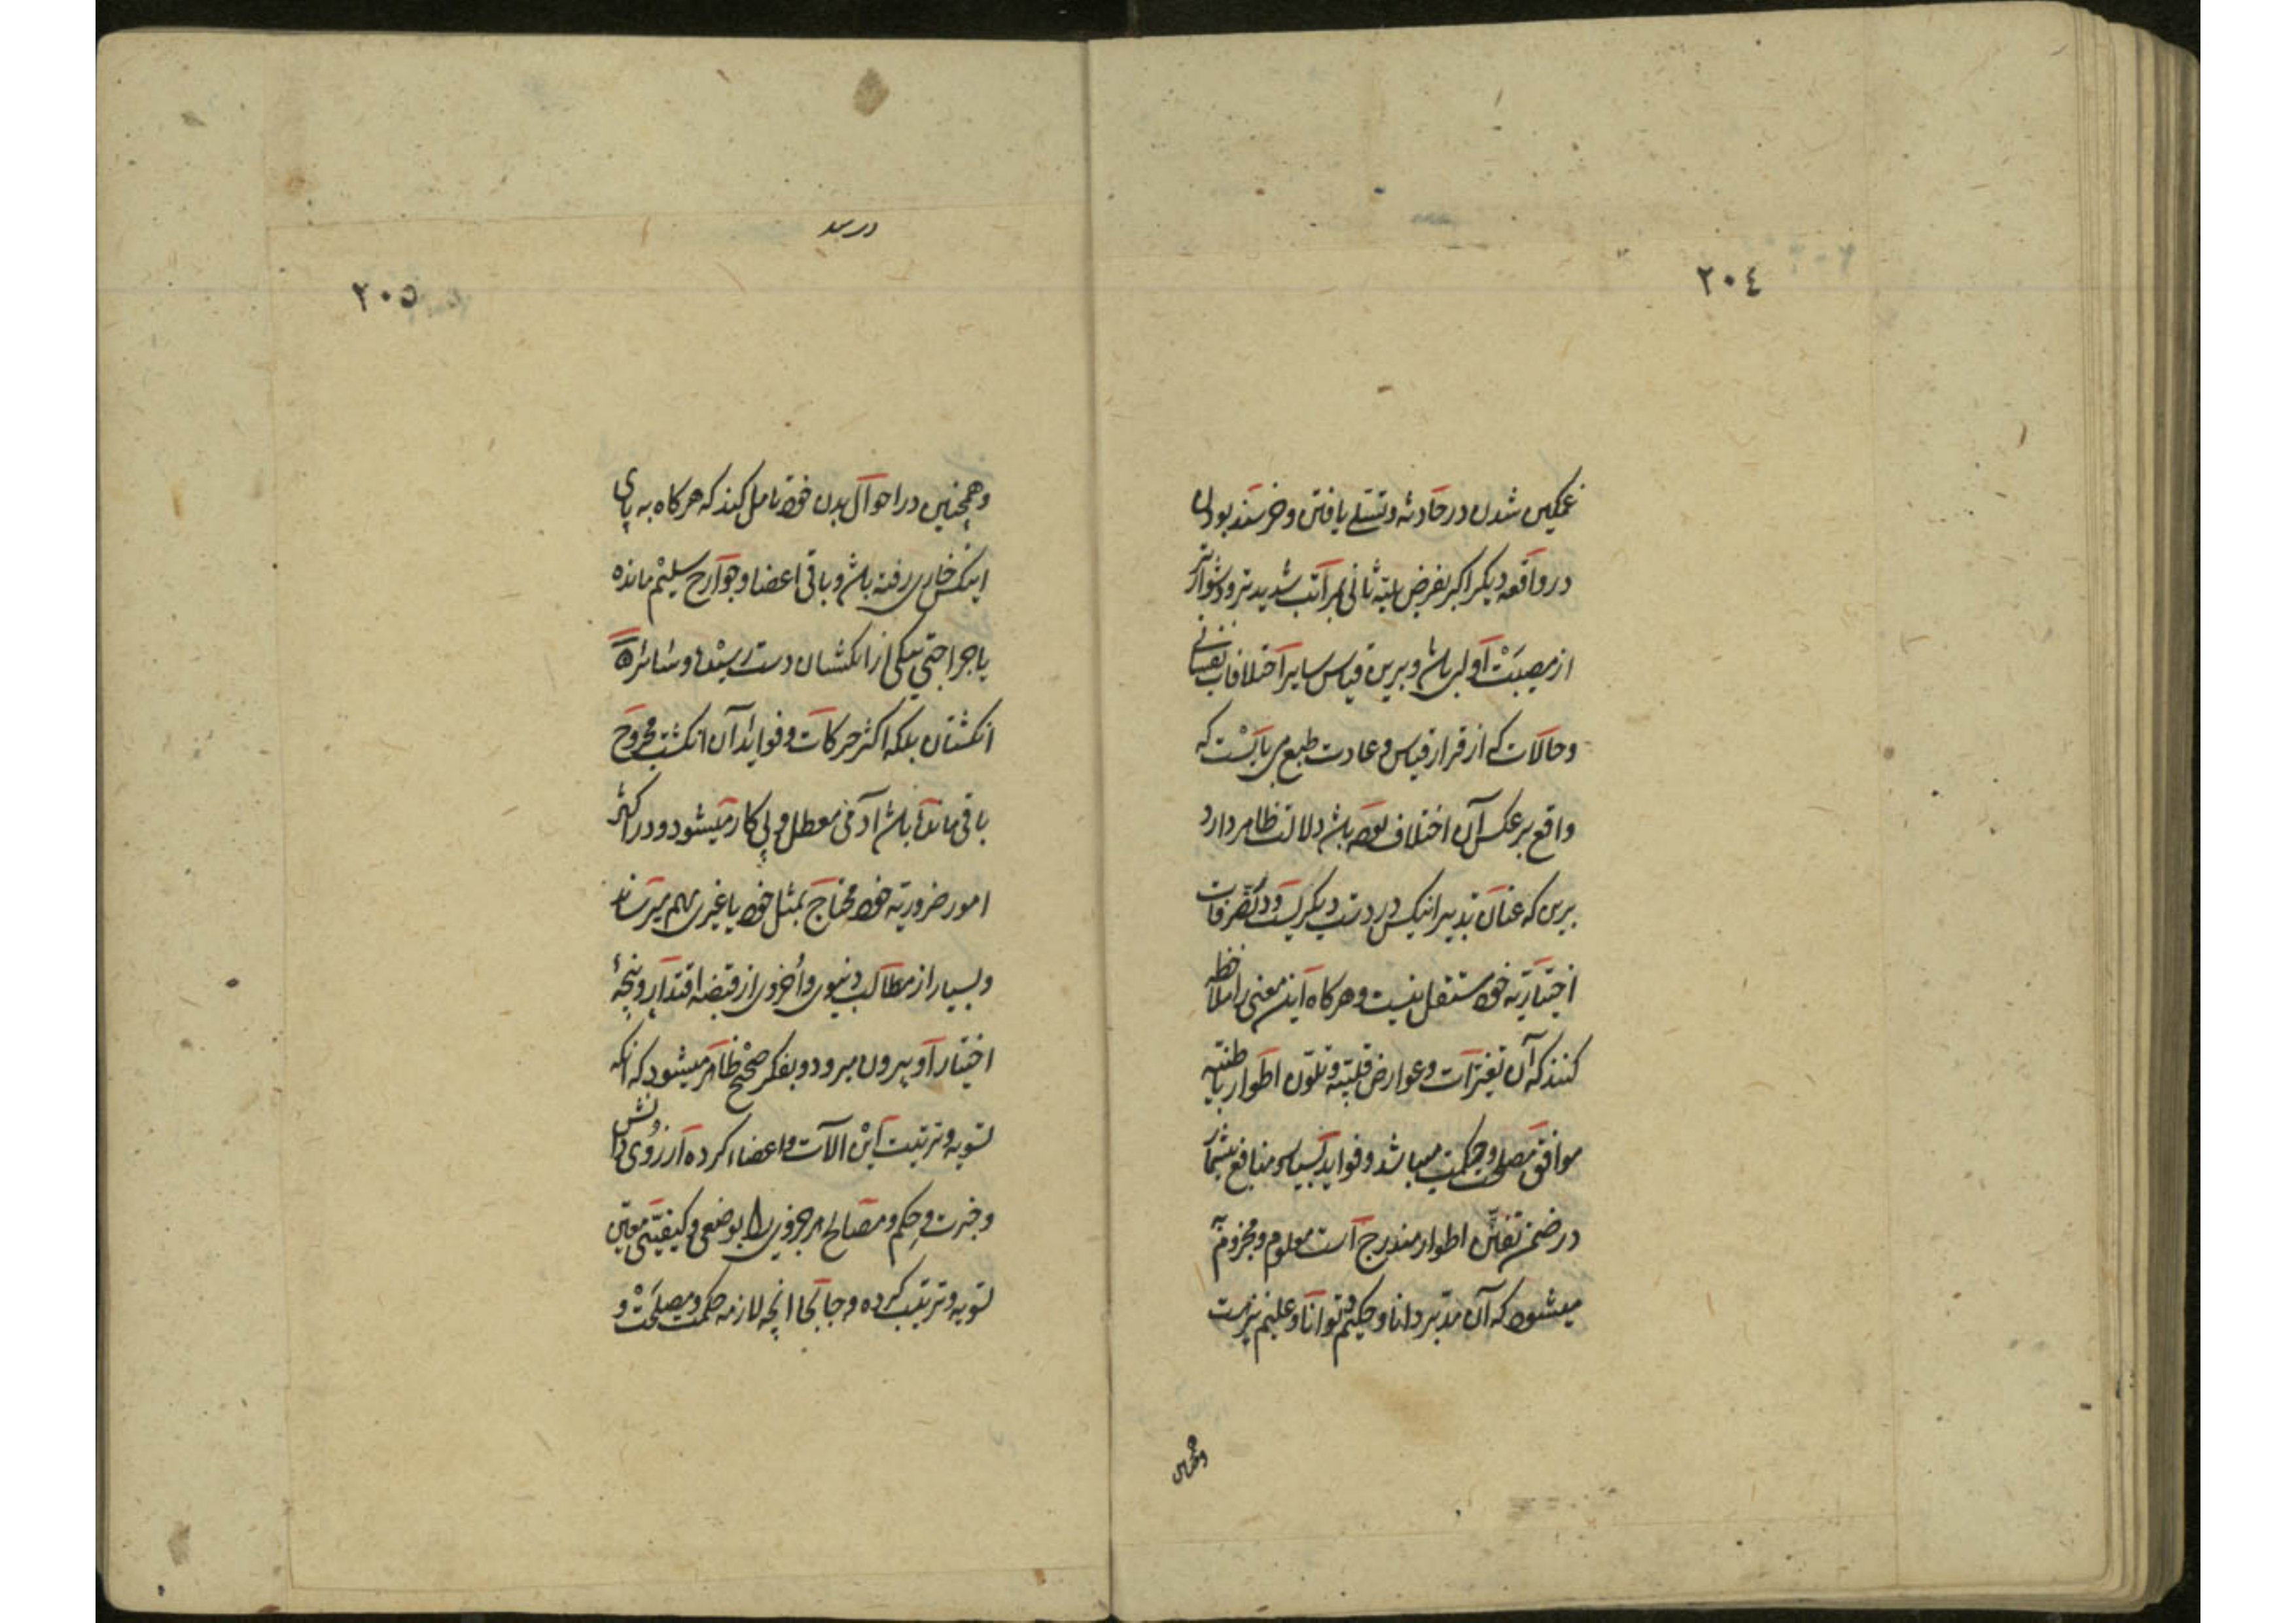 ٢٠٤
غمکین شدن در حادثه و تسلے یافتن و خرسند بودن
در واقعه دیکر اکر بفرض بلیّه ثانی بمراتب شدید تر و دشوارتر
از مصیبت اولی باشد و برین قیاس سایر اختلافات نفسانی
و حالات که از قرار قیاس و عادت طبع می بایست که
واقع بر عکس آن اختلاف بوده باشد دلالت ظاهر دارد
برین که عنان تدبیر اینکس در دست دیکریست و در تصرفات
اختیاریّه خود مستقل نیست و هر کاه این معنی را ملاحظه
کنند که آن تغیّرات و عوارض قلبیّه و تلوّن اطوار باطنیّه
موافق مصلحت و حکمت میباشد و فواید بسیار و منافع بیشمار
در ضمن تفنّن اطوار مندرج است معلوم و مجزوم
میشود که آن مدبّر دانا و حکیم و توانا و علیم نیز هست
وهمچنین
٢٠٥
در بند
وهمچنین در احوال بدن خود تامل کند که هر کاه به پای
اینکس خاری رفته باشد و باقی اعضا و جوارح سلیم مانده
یا جراحتی بیکی از انکشتان دست رسیده و سائر
انکشتان بلکه اکثر حرکات و فوائد آن انکشت مجروح
باقی مانده باشد آدمی معطل و بی کار میشود و در اکثر
امور ضروریّه خود محتاج بمثل خود یا غیری بهم میرساند
و بسیار از مطالب دنیوی و اخروی از قبضه اقتدار و پنجهٔ
اختیار او بیرون میرود و بفکر صحیح ظاهر میشود که انکه
تسویه و تربیت این الات و اعضاء کرده از روی دانش
و خبرت و حکم و مصالح هر جزوی را بوضعی و کیفیّتی معیّن
تسویه و ترتیب کرده و جابجا انچه لازمه حکمت و مصلحت و